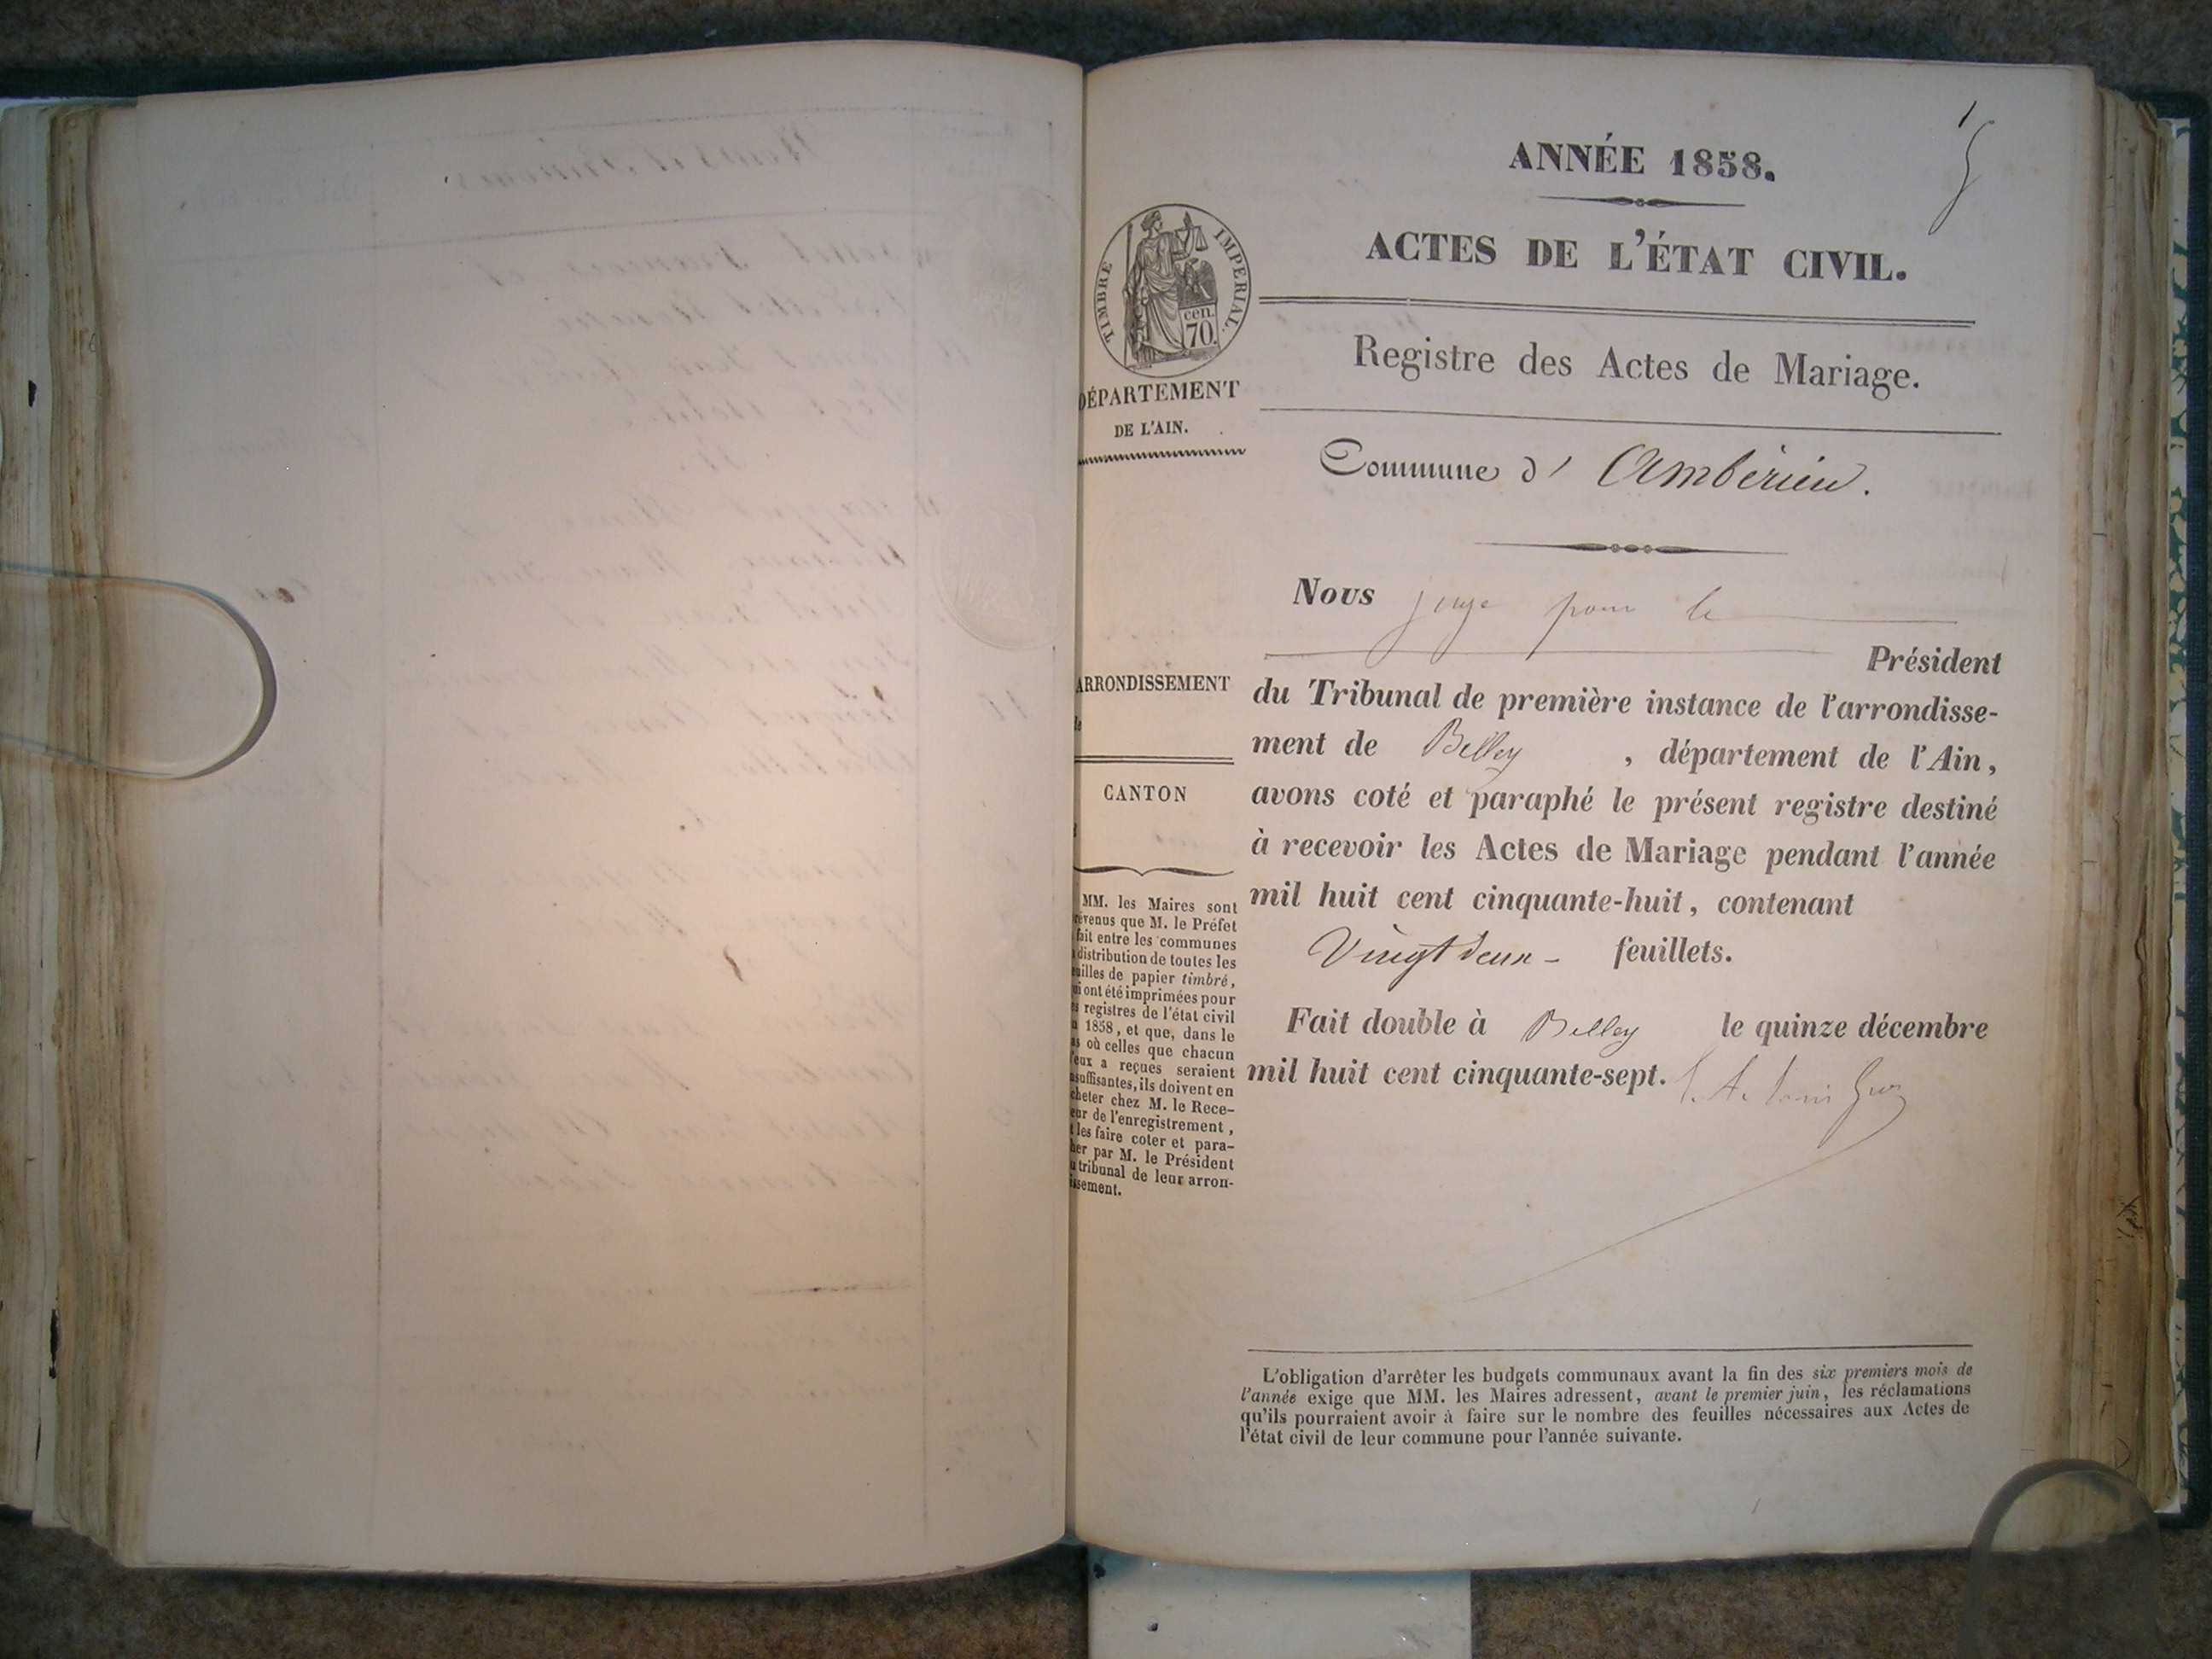 ANNÉE 1858.
ACTES DE L'ÉTAT CIVIL.
TIMBRE IMPERIAL.
cen.
70.
DÉPARTEMENT
DE L'AIN.
Registre des Actes de Mariage.
Commune d' Ambérieu.
Nous juge pour le
Président
du Tribunal de première instance de l'arrondisse-
ment de Belley , département de l'Ain,
avons coté et paraphé le présent registre destiné
à recevoir les Actes de Mariage pendant l'année
mil huit cent cinquante-huit, contenant
Vingt deux - feuillets.
Fait double à Belley le quinze décembre
mil huit cent cinquante-sept.
ARRONDISSEMENT
CANTON
MM. les Maires sont
révenus que M. le Préfet
fait entre les communes
distribution de toutes les
uilles de papier timbré,
ui ont été imprimées pour
es registres de l'état civil
n 1858, et que, dans le
as où celles que chacun
'eux a reçues seraient
nsuffisantes, ils doivent en
cheter chez M. le Rece-
eur de l'enregistrement,
t les faire coter et para-
her par M. le Président
u tribunal de leur arron-
issement.
L'obligation d'arrêter les budgets communaux avant la fin des six premiers mois de
l'année exige que MM. les Maires adressent, avant le premier juin, les réclamations
qu'ils pourraient avoir à faire sur le nombre des feuilles nécessaires aux Actes de
l'état civil de leur commune pour l'année suivante.